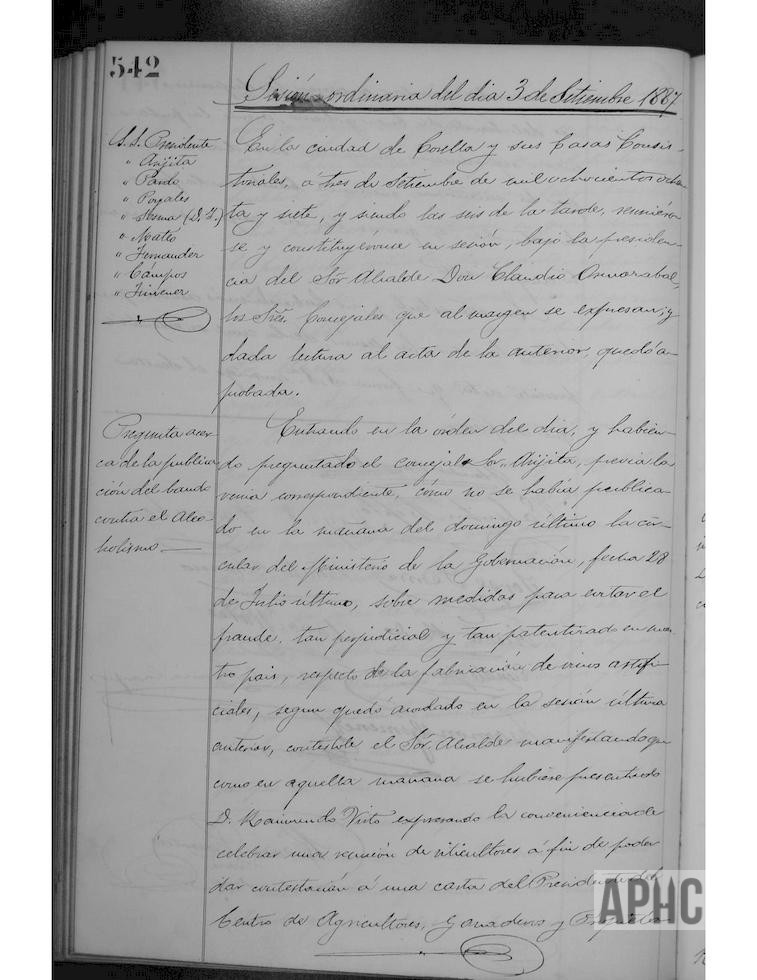 542
Sesión ordinaria del dia 3 de Setiembre 1887.
S. S. Presidente
" Arijita
" Pardo
" Posales
" Sesma (D. F.)
" Mateo
" Fernandez
" Cámpos
" Jimenez
En la ciudad de Corella y sus Casas Consis-
toriales, á tres de Setiembre de mil ochocientos ochen-
ta y siete, y siendo las seis de la tarde, reunieron-
se y constituyéronse en sesión, bajo la presiden-
cia del Sor Alcalde Don Claudio
los Sres. Concejales que al margen se expresan; y
dada lectura al acta de la anterior, quedó a-
probada.
Pregunta acer-
ca de la publica-
ción del bando
contra el Alco-
holismo.
Entrando en la órden del dia, y habien-
do preguntado el concejal Sor. Arijita, previa la
venia correspondiente, cómo no se había publica-
do en la mañana del domingo último la cir-
cular del Ministerio de la Gobernación, fecha 28
de Julio último, sobre medidas para evitar el
fraude, tan perjudicial y tan patentizado en nues-
tro pais, respecto de la fabricación de vinos artifi-
ciales, segun quedó acordado en la sesión última
anterior, contestóle el Sor. Alcalde manifestando que
como en aquella mañana se hubiese presentado
D. Raimundo Virto expresando la conveniencia de
celebrar una reunión de viticultores á fin de poder
dar contestación á una carta del Presidente del
Centro de Agricultores, Ganaderos y
APHC